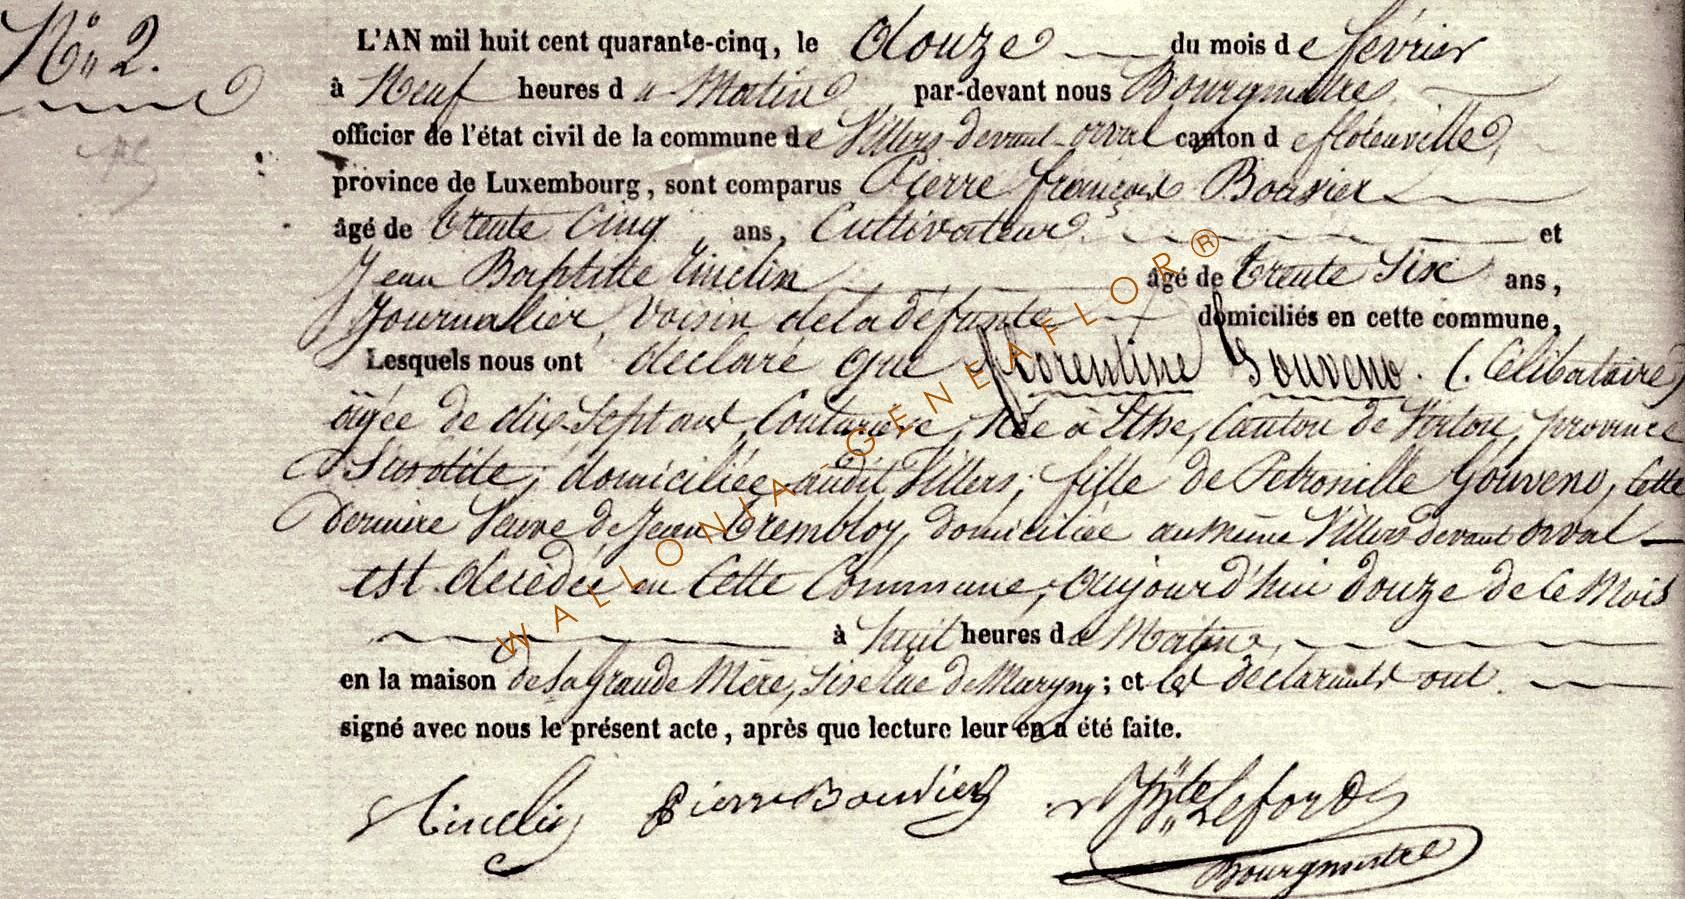 N° 2.
L'AN mil huit cent quarante-cinq, le douze du mois de février
à Neuf heures du Matin par-devant nous Bourgmestre
officier de l'état civil de la commune de Villers-devant-orval canton de florenville,
province de Luxembourg, sont comparus Pierre françois Bouvier
âgé de trente Cinq ans, Cultivateur et
Jean Baptiste Tinclin âgé de trente Six ans,
Journalier, Voisin de la défunte domiciliés en cette commune,
Lesquels nous ont déclaré que florentine Gouveno. (Célibataire)
âgée de dix-Sept ans, Couturière, Née à Ethe, Canton de Virton, province
domiciliée audit Villers; fille de Petronille Gouveno, cette
dernière Veuve de Jean Trembloy, domiciliée au même Villers devant orval
est décédée en Cette Commune, aujourd'hui douze de ce Mois
à huit heures du Matin,
en la maison de sa Grande Mère, Sise rue de Margny; et les déclarants ont
signé avec nous le présent acte, après que lecture leur en a été faite.
Tinclin Pierre Bouvier Leford
Bourgmestre
WALLONIA-GÉNÉAFLOR®